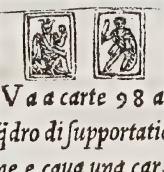 V a a carte 9 8 a
q̃dro di ſupportatio
ne e caua una car